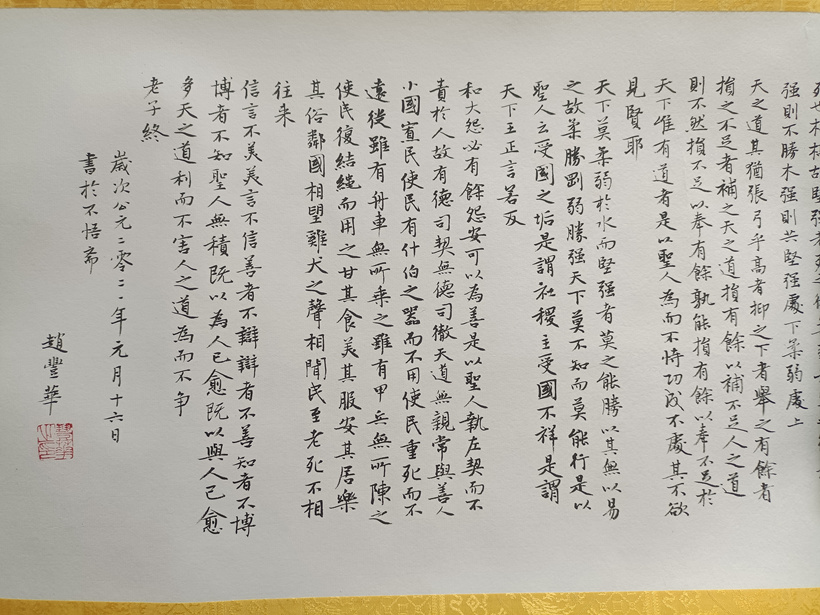 强則不勝木强則共堅强處下柔弱處上
天之道其猶張弓乎高者抑之下者舉之有餘者
損之不足者補之天之道損有餘以補不足人之道
則不然損不足以奉有餘孰能損有餘以奉不足於
天下唯有道者是以聖人為而不恃功成不處其不欲
見賢耶
天下莫柔弱於水而堅强者莫之能勝以其無以易
之故柔勝剛弱勝强天下莫不知而莫能行是以
聖人云受國之垢是謂社稷主受國不祥是謂
天下王正言若反
和大怨必有餘怨安可以為善是以聖人執左契而不
責於人故有德司契無德司徹天道無親常與善人
小國寡民使民有什伯之器而不用使民重死而不
遠徙雖有舟車無所乘之雖有甲兵無所陳之
使民復結繩而用之甘其食美其服安其居樂
其俗鄰國相望雞犬之聲相聞民至老死不相
往来
信言不美美言不信善者不辯辯者不善知者不博
博者不知聖人無積既以為人己愈既以與人己愈
多天之道利而不害人之道為而不争
老子終
歲次公元二零二一年元月十六日
書於不悟齋
趙豐華